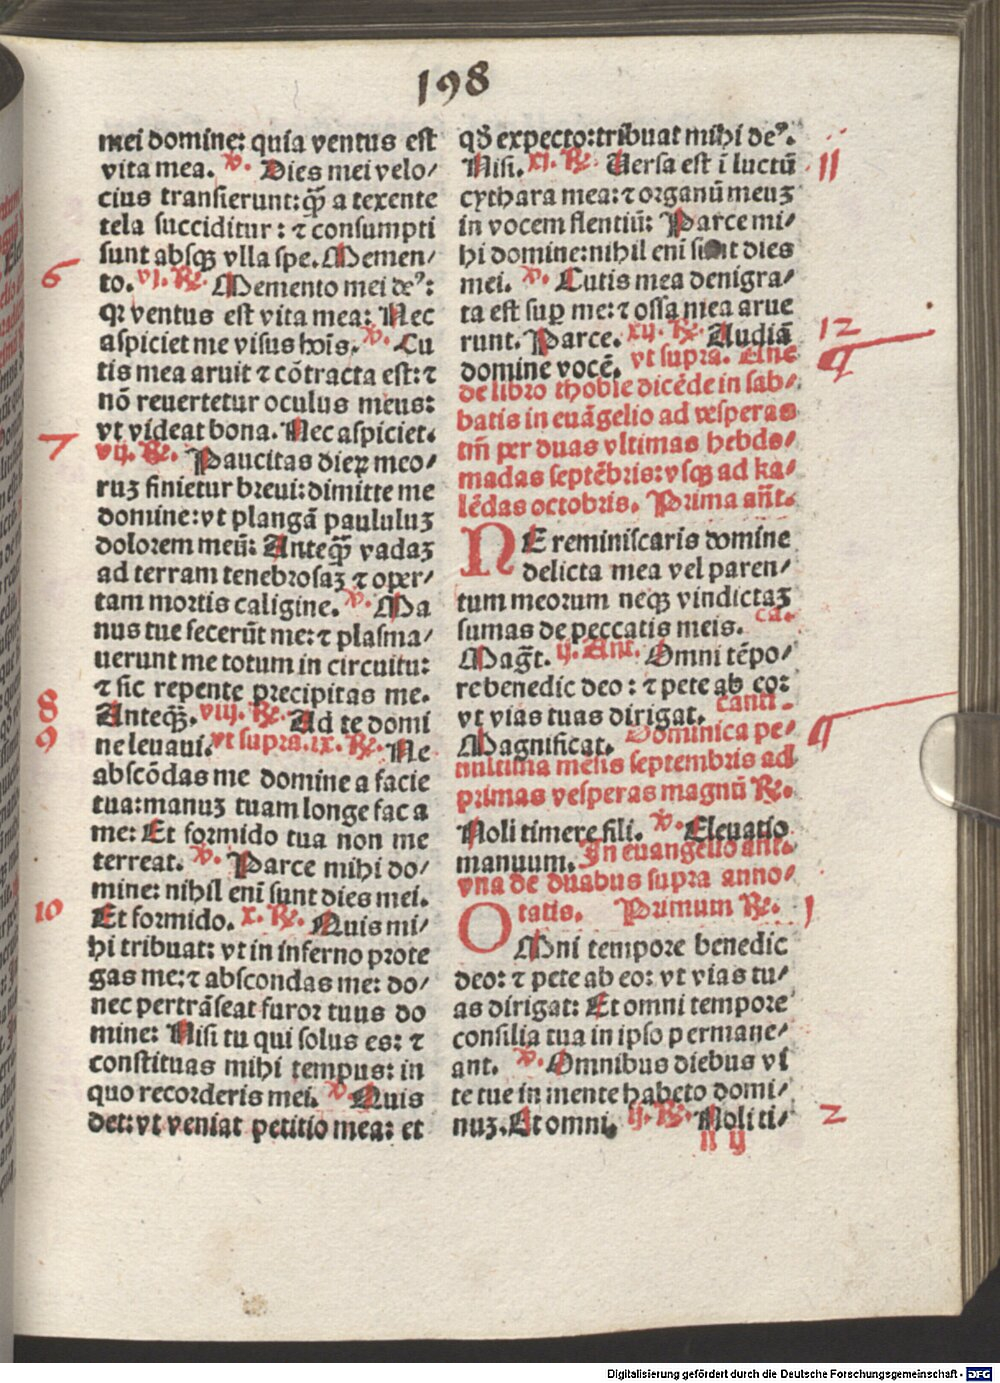 198
mei domine: quia ventus est
vita mea. v. Dies mei velo/
cius transierunt: q̃ꝫ a texente
tela succiditur: ⁊ consumpti
sunt absqꝫ vlla spe. Memen/
6
to. vi. R̷. Memento mei deꝰ:
qꝛ ventus est vita mea: Nec
aspiciet me visus hoĩs. v. Cu
tis mea aruit ⁊ cõtracta est: ⁊
nõ reuertetur oculus meus:
vt videat bona. Nec aspiciet.
7
vij. R̷. Paucitas dieꝝ meo/
ruꝫ finietur breui: dimitte me
domine: vt plangã paululuꝫ
dolorem meũ: Anteq̃ꝫ vadaꝫ
ad terram tenebrosaꝫ ⁊ oper/
tam mortis caligine. v. Ma
nus tue fecerũt me: ⁊ plasma/
uerunt me totum in circuitu:
⁊ sic repente precipitas me.
8
Anteq̃ꝫ. viij. R̷. Ad te domi
9
ne leuaui. vt supra. ix. R̷. Ne
abscõdas me domine a facie
tua: manuꝫ tuam longe fac a
me: Et formido tua non me
terreat. v. Parce mihi do/
mine: nihil enĩ sunt dies mei.
10
Et formido. x. R̷. Quis mi/
hi tribuat: vt in inferno prote
gas me: ⁊ abscondas me: do/
nec pertrãseat furor tuus do
mine: Nisi tu qui solus es: ⁊
constituas mihi tempus: in
quo recorderis mei. v. Quis
det: vt veniat petitio mea: et
qđ expecto: tribuat mihi deꝰ.
Nisi. xi. R̷. Uersa est ĩ luctũ
11
cythara mea: ⁊ organũ meuꝫ
in vocem flentiũ: Parce mi/
hi domine: nihil enĩ sunt dies
mei. v. Cutis mea denigra/
ta est suꝑ me: ⁊ ossa mea arue
runt. Parce. xij. R̷. Audiã
12
domine vocẽ. vt supra. Añe
de libro thobie dicẽde in sab/
batis in euãgelio ad vesperas
tm̃ per duas vltimas hebdo/
madas septẽbris: vsqꝫ ad ka/
lẽdas octobris. Prima añt.
NE reminiscaris domine
delicta mea vel paren/
tum meorum neqꝫ vindictaꝫ
sumas de peccatis meis. ca.
Mag̃t. ij. Ant. Omni tẽpo/
re benedic deo: ⁊ pete ab eo:
vt vias tuas dirigat. canti.
Magnificat. Dominica pe/
nultima mẽsis septembris ad
primas vesperas magnũ R̷.
Noli timere fili. v. Eleuatio
manuum. In euangelio ant.
vna de duabus supra anno/
tatis. Primum R̷.
1
OMni tempore benedic
deo: ⁊ pete ab eo: vt vias tu/
as dirigat: Et omni tempore
consilia tua in ipso permane/
ant. v. Omnibus diebus vi
te tue in mente habeto domi/
nuꝫ. Et omni. ij. R̷. Noli ti/
2
Digitalisierung gefördert durch die Deutsche Forschungsgemeinschaft - DFG